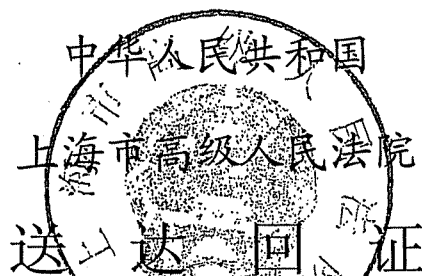 中华人民共和国
上海市高级人民法院
送达回证